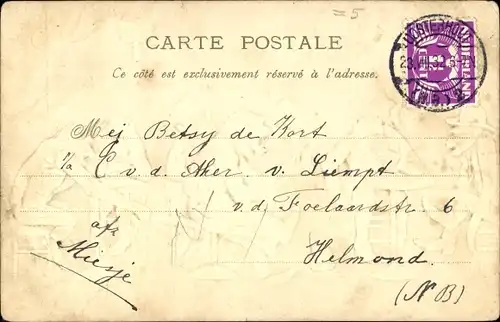 =5
CARTE POSTALE
Ce côté est exclusivement réservé à l'adresse.
Mej Betsy de Kort
p/a C v. d. Aker. v. Liempt
v. d. Foelaardstr. 6
Helmond.
(NB)
afz
Miesje
OOSTERHOUT
(N.B.)